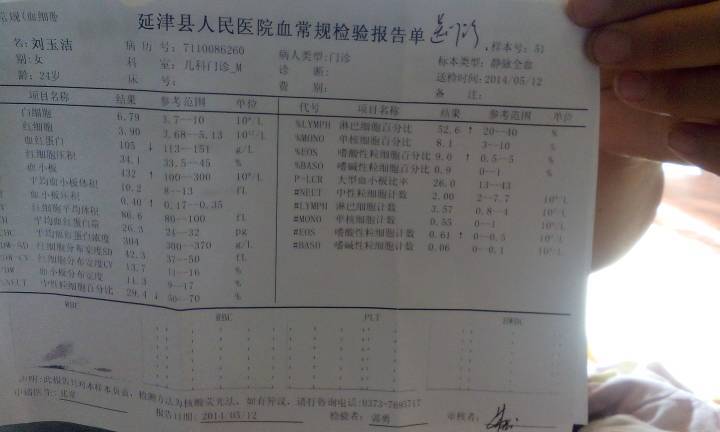 常规(血细胞
延津县人民医院血常规检验报告单
名: 刘玉洁 病 历 号: 7110086260 病人类型: 门诊 样本号: 51
别: 女 科 室: 儿科门诊_M 诊 断: 标本类型: 静脉全血
龄: 24岁 床 号: 费 别: 送检时间: 2014/05/12
备 注:
项目名称 结果 参考范围 单位 代号 项目名称 结果 参考范围 单位
白细胞 6.79 3.7—10 10^9/L %LYMPH 淋巴细胞百分比 52.6 ↑ 20—40 %
红细胞 3.90 3.68—5.13 10^12/L %MONO 单核细胞百分比 8.1 3—10 %
血红蛋白 105 ↓ 113—151 g/L %EOS 嗜酸性粒细胞百分比 9.0 ↑ 0.5—5 %
红细胞压积 34.1 33.5—45 % %BASO 嗜碱性粒细胞百分比 0.9 0—1 %
血小板 432 ↑ 100—300 10^9/L P-LCR 大型血小板比率 26.0 13—43
平均血小板体积 10.2 8—13 fL #NEUT 中性粒细胞计数 2.00 2—7.7 10^9/L
血小板压积 0.40 ↑ 0.17—0.35 #LYMPH 淋巴细胞计数 3.57 0.8—4 10^9/L
红细胞平均体积 86.6 80—100 fL #MONO 单核细胞计数 0.55 0—1 10^9/L
平均血红蛋白量 26.3 24—32 pg #EOS 嗜酸性粒细胞计数 0.61 ↑ 0—0.5 10^9/L
平均血红蛋白浓度 304 300—370 g/L #BASO 嗜碱性粒细胞计数 0.06 0—0.1 10^9/L
红细胞分布宽度SD 42.3 37—50 fL
红细胞分布宽度CV 13.7 11—16 %
血小板分布宽度 11.3 9—17 %
%NEUT 中性粒细胞百分比 29.4 ↓ 50—70 %
WBC RBC PLT
声明: 此报告只对本样本负责, 检测方法为核酸荧光法, 如有异议, 请行咨询电话:0373-7695717
申请医生:
报告日期: 2014/05/12 检验者: 郭勇 审核者: